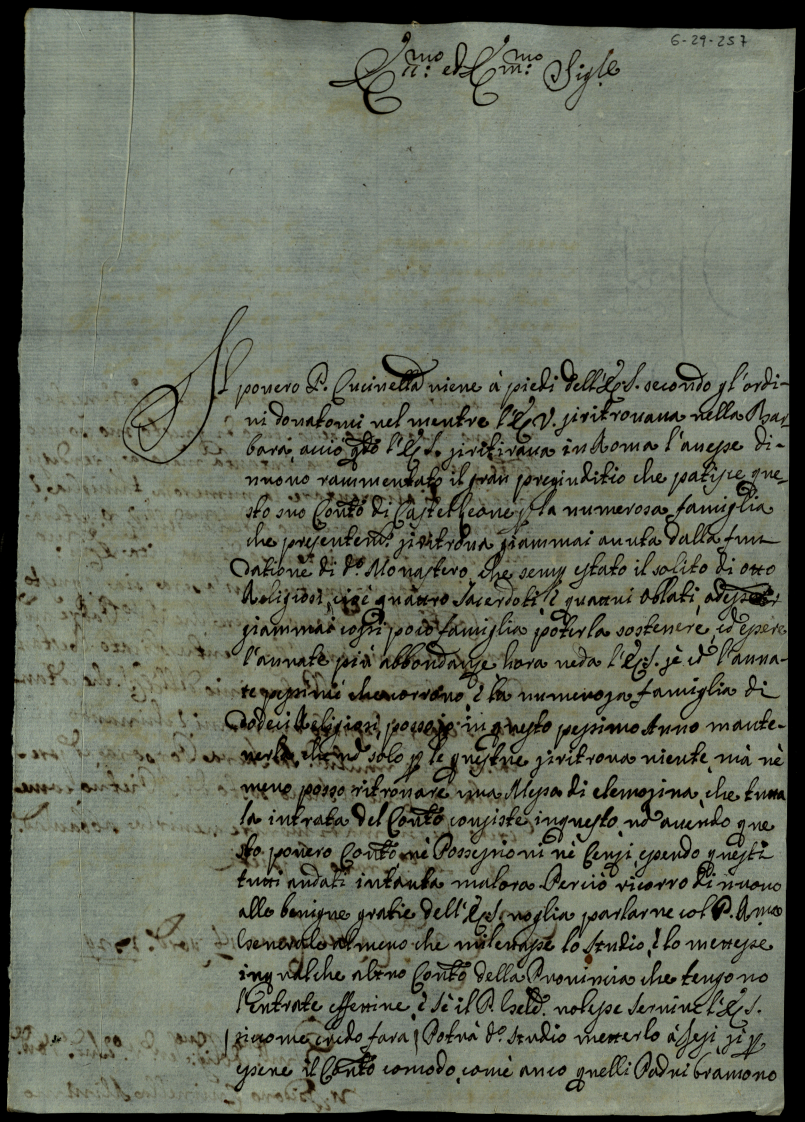 6-29-257
E.mo ed E.mo Sig.re
Il povero P. Cucinella viene à piedi dell'E.S. secondo gl'ordi-
ni donatomi nel mentre l'E.V. si ritrovava nella Bar-
bara, acciò q.do l'E.S. si ritirava in Roma l'avesse di
nuovo rammentato il gran pregiuditio che patisce que-
sto suo Conto di Castelleone p la numerosa famiglia
che presentem.te si ritrova giammai avuta dalla fun-
datione di d.o Monastero, che sempre stato il solito di otto
Religiosi, cioè quattro Sacerdoti, è quattri Oblati,
giammai ogni poco famiglia poterla sostenere, ed essere
l'annate più abbondanze hora veda l'E.S. sè l'anna-
te pessime che corrono, è la numerosa famiglia di
dodeci Religiosi, possa io in questo pessimo Anno mante-
nerla, che nō solo p le questue si ritrova niente, mà nè
meno posso ritrovare una Messa di elemosina, che tutta
la intrata del Conto consiste in questo, nō avendo que
sto povero Conto nè Possessioni nè Censi, essendo questi
tutti andati in tanta malora. Perciò ricorro di nuovo
alle benigne gratie dell'E.S. voglia parlarne col P.
Generale almeno che mi levasse lo studio, è lo mettesse
in qualche altro Conto della Provincia che tengono
l'Entrate effettive, è sè il P. Gnle volesse servire l'E.S.
siccome credo farà, Potrà d.o studio metterlo à Jesi, si p
essere il Conto comodo, come anco quelli Padri bramono